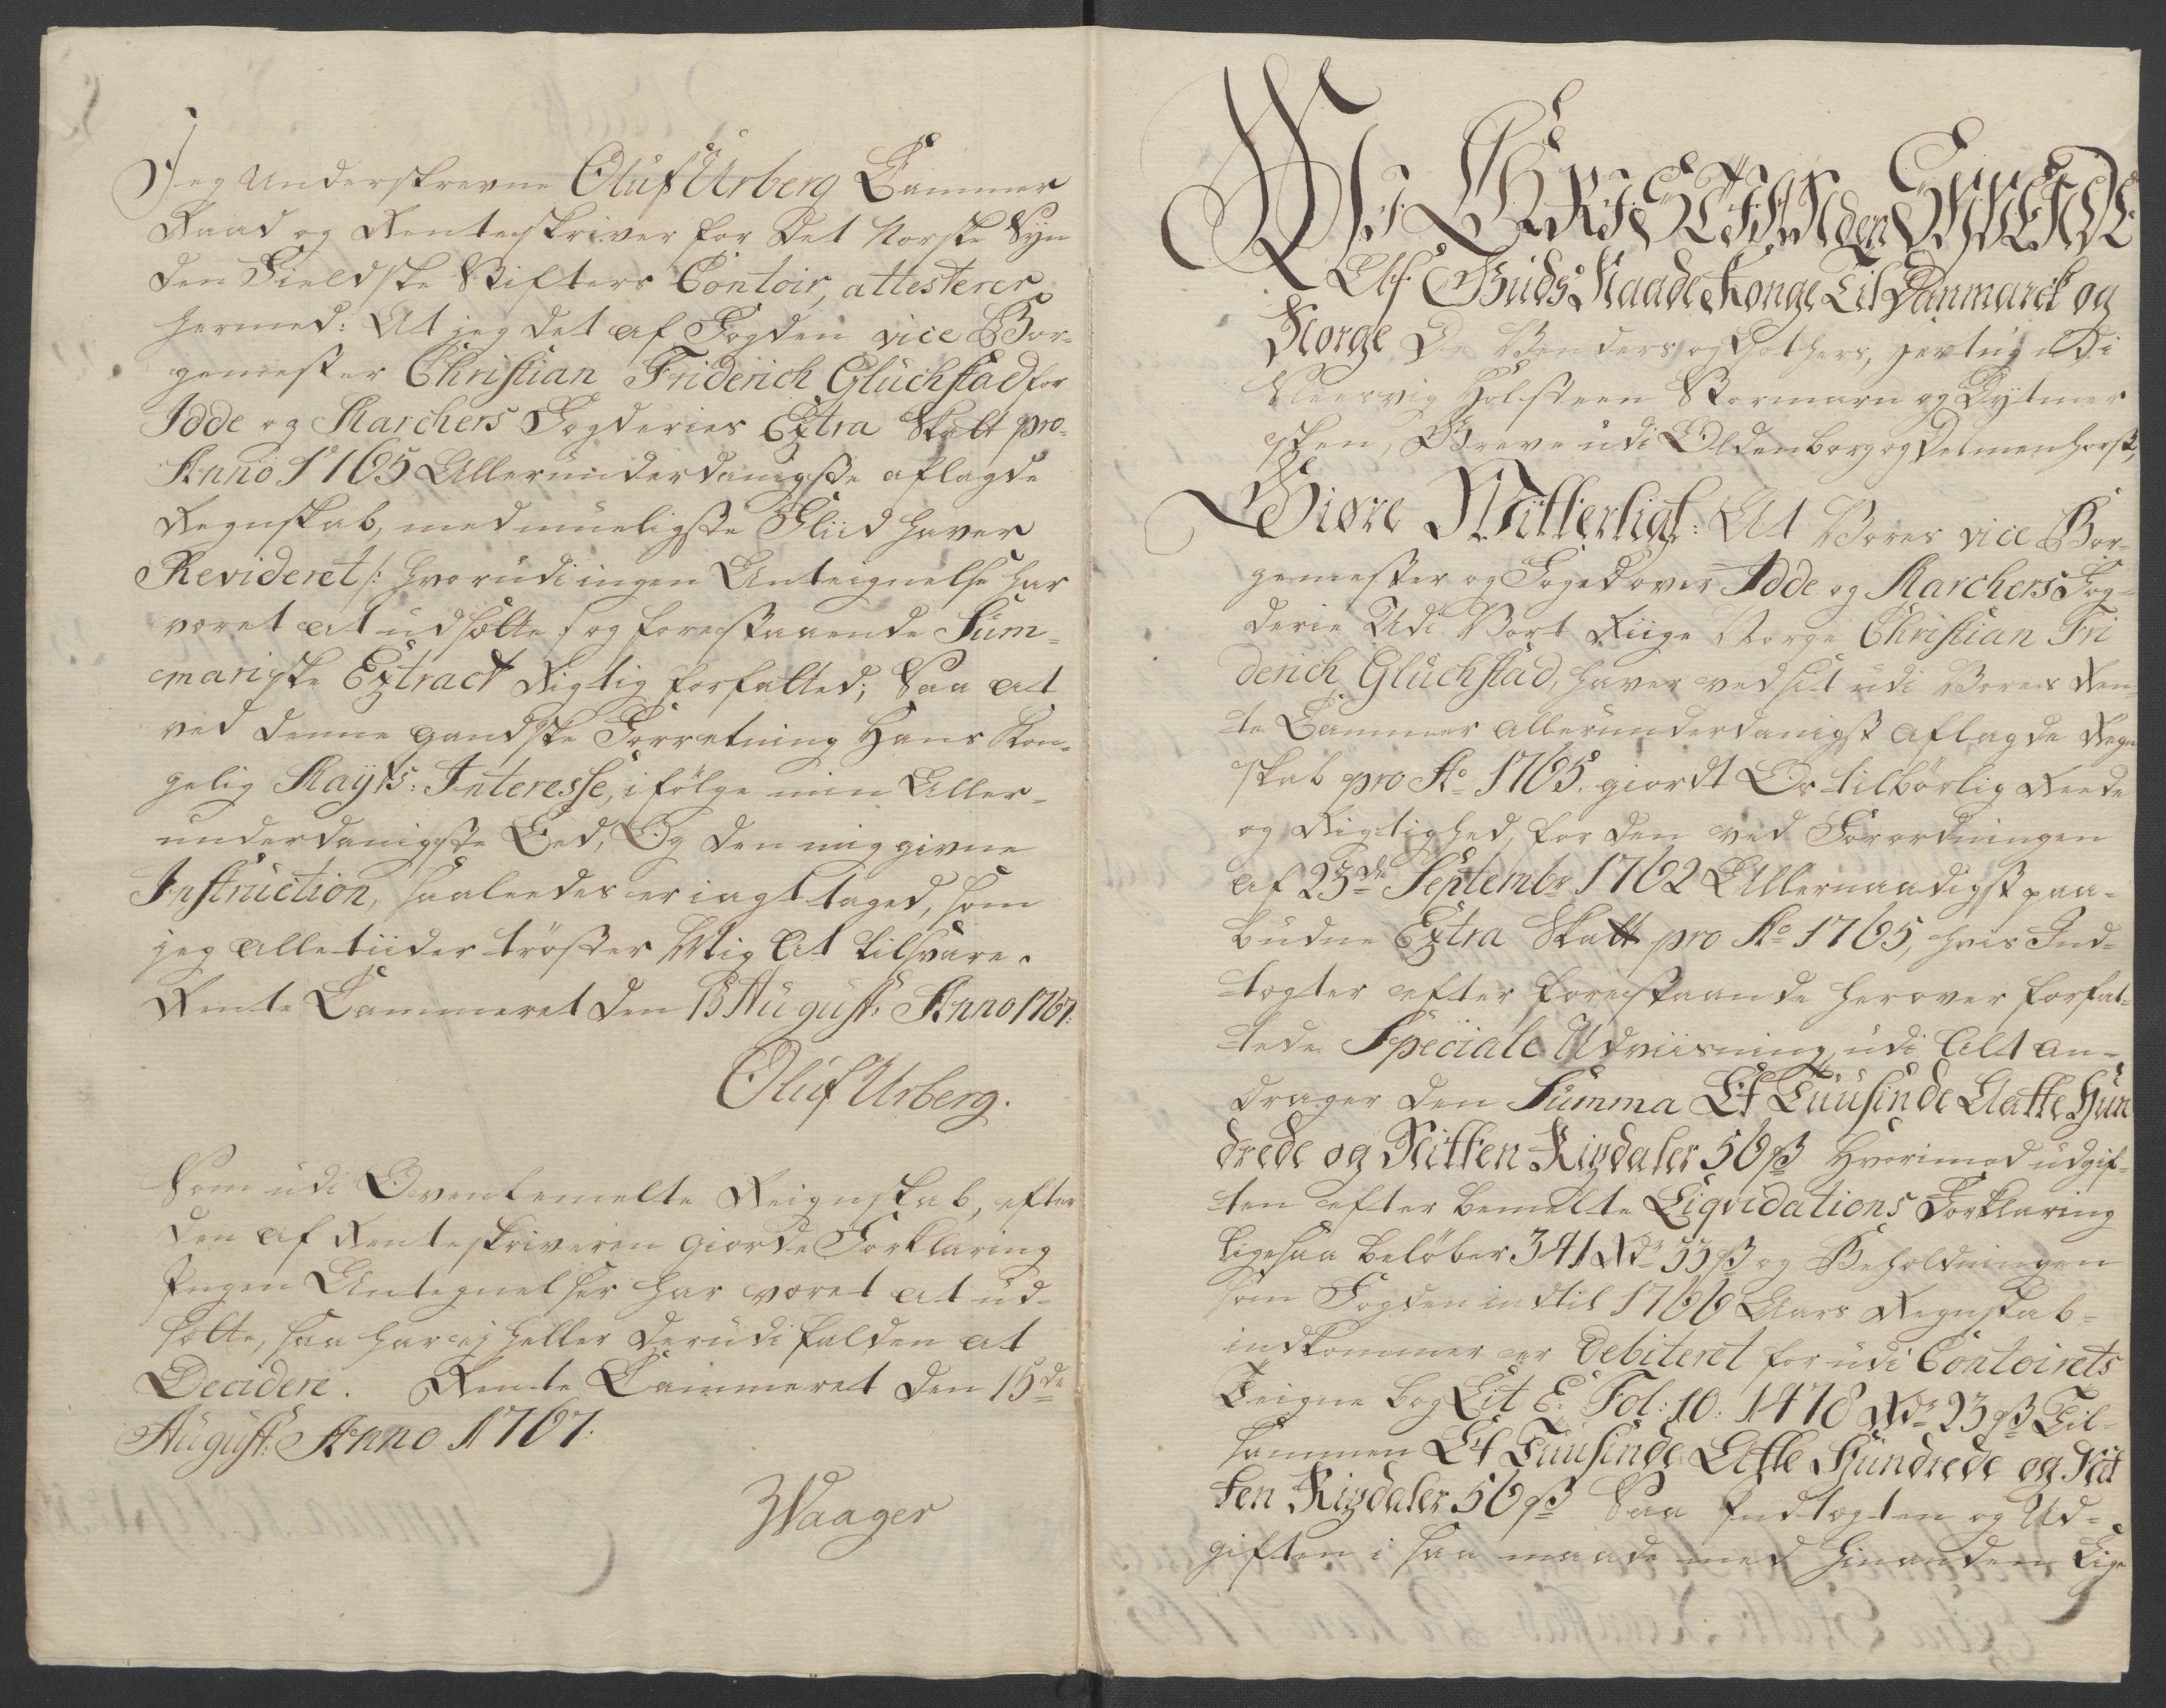 Jeg Underskrevne Oluf Urberg Cammer
Raad og Renteskriver for Det Norske Syn
den Fieldske Stifters Contoir, attesterer
hermed: At jeg det af Fogden vice Bor-
gemester Christian Friderich Glückstad for
Idde og Marchers Fogderies Extra Skatt pro
Anno 1765 Allerunderdanigste aflagde
Regnskab, med mueligste Fliid haver
Revideret /: hvorudi ingen Anteignelse har
været at udsætte :/ og forestaaende Sum-
mariske Extract Rigtig forfatted; Saa at
ved denne gandske Forretning Hans Kon-
gelig Mayts: Interesse, ifölge min Aller-
underdanigste Eed, Og den mig givne
Instruction, saaleedes er iagttaged, som
jeg alletiider tröster Mig at tilsvare.
Rente Cammeret den 15 August: Anno 1767.
Oluf Urberg.
Som udi Ovenbemelte Reignskab, efter
den af Renteskriveren giorde Forklaring
Ingen Antegnelser har været at ud-
sætte, saa har ej heller derudi falden at
Decidere. Rente Cammeret den 15de
August: Anno 1767.
Waager
Wi CHRISTIAN den SYVENDE
Af Guds Naade Konge Til Danmarck og
Norge De Venders og Gothers, Hertug udi
Sleesvig Holsteen Stormarn og Dytmer
sken, Greve udi Oldenborg og Delmenhorst,
Giøre Witterligt: At Vores vice Bor-
gemester og Foged over Idde og Marchers Fog-
derie Udi Vort Riige Norge Christian Fri
derich Glückstad, haver ved sit udi Vores Ren
te Cammer allerunderdanigst aflagde Regn
skab pro Ao 1765. giordt Os tilbörlig Reede
og Rigtighed, for den ved Forordningen
af 23de Septembr 1762 Allernaadigst paa-
budne Extra Skatt pro Ao 1765, hvis Ind-
tægter efter forestaaende herover forfat-
tede Speciale Udviisning, udi Alt an-
drager den Summa Et Tuusinde Aatte Hun
drede og Nitten Rixdaler 56 ß Hvorimod udgif-
ten efter bemelte Liqvidations Forklaring
ligesaa belöber 341 Rdr 33 ß og Beholdningen
som Fogden indtil 1766 Aars Regnskab
indkommer er debiteret for udi Contoirets
Teigne bog Lit E: Fol: 10: 1478 Rdr 23 ß Til-
sammen Et Tuusinde Atte Hundrede og Nit
ten Rixdaler 56 ß Saa Indtægten og Ud-
giften i saa maade med hinanden Lige